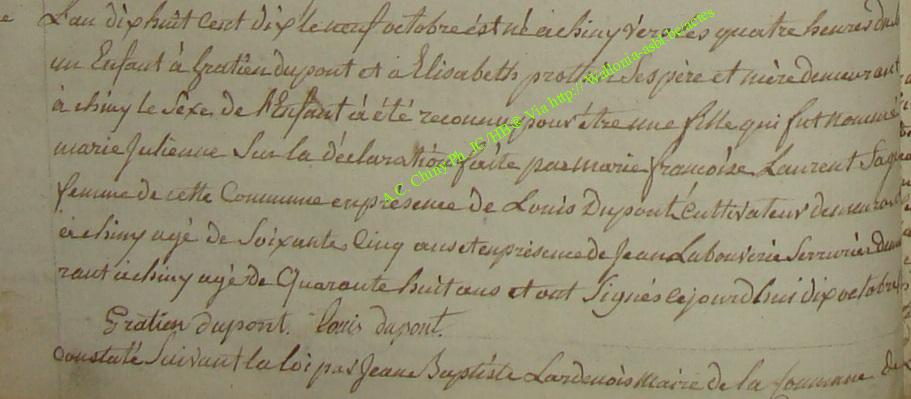 L'an dix huit cent dix le neuf octobre est né à chiny vèr les quatre heures du
un Enfant à Gratien dupont et a Elisabeth ses père et mère demeurant
à chiny le sexe de l'Enfant à été reconnu pour être une fille qui fut nommé
marie Julienne Sur la déclaration faite par marie françoise Laurent Sage
femme de cette Commune en présence de Louis Dupont Cultivateur demeurant
à chiny agé de Soixante Cinq ans et en présence de Jean Labouverie Serrurier demeu
rant à chiny agé de Quarante huit ans et ont Signés cejourd'hui dix octobre
Gratien dupont. Louis dupont.
constaté Suivant la loi par Jean Baptiste Lardenois Maire de la Commune de
A.C. Chiny Ph. JC /HB @ Via http:// Wallonia-asbl.be/actes